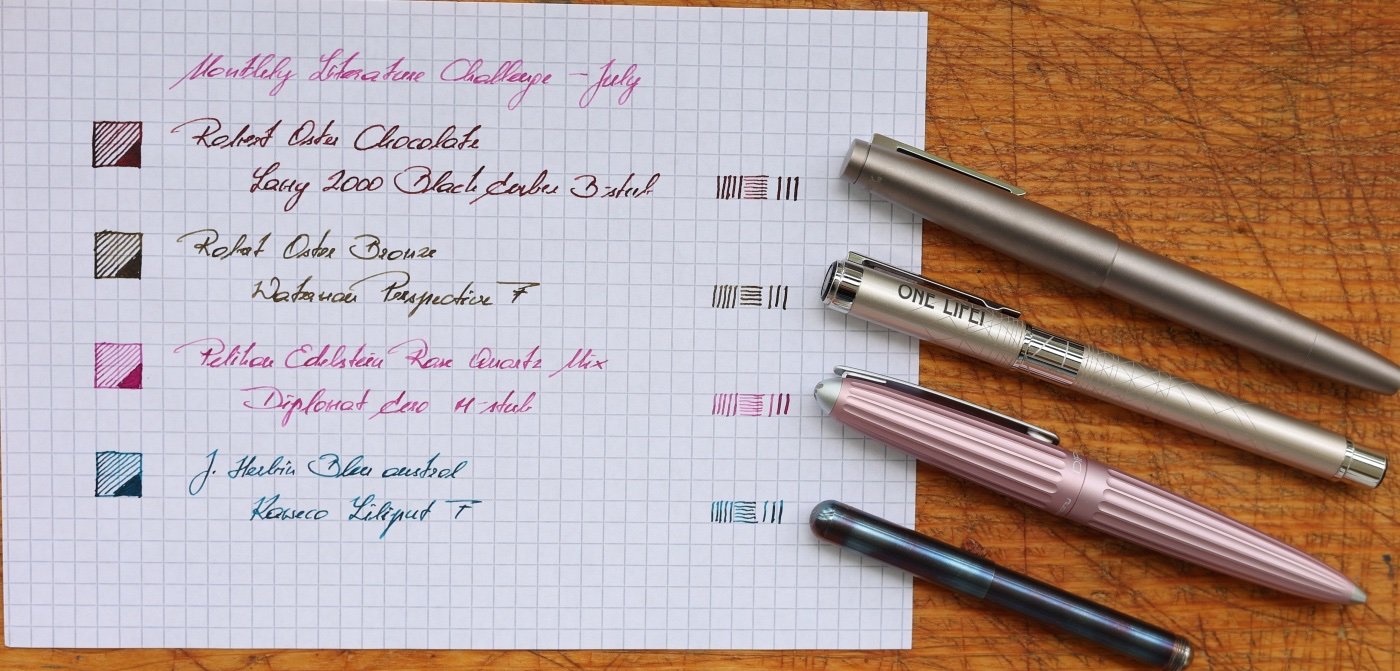 Monthly Literature Challenge - July
Robert Oster Chocolate
Lamy 2000 Black Amber B-stub
Robert Oster Bronze
Waterman Perspective F
Pelikan Edelstein Rose Quartz Mix
Diplomat Aero M-stub
J. Herbin Bleu austral
Kaweco Liliput F
ONE LIFE!